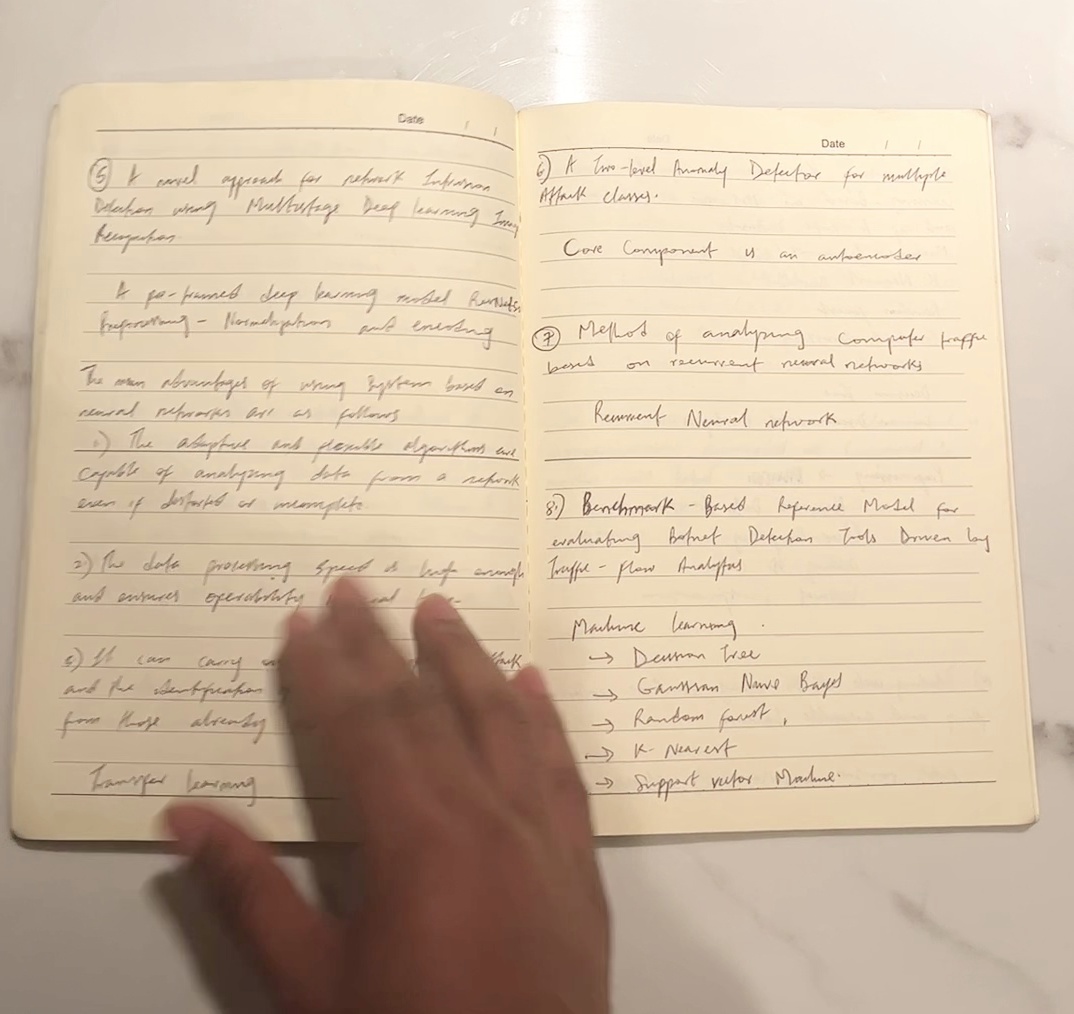 Date / /
⑤ A novel approach for network Intrusion
Detection using Multistage Deep learning Image
Recognition.
A pre-trained deep learning model ResNet50
Preprocessing - Normalization and encoding
The main advantages of using System based on
neural networks are as follows
1) The adaptive and flexible algorithms are
capable of analyzing data from a network
even if distorted or incomplete.
2) The data processing speed is high enough
and ensures operability
3) It can carry
and the identification
from those already
Transfer learning
Date / /
6) A Two-level Anomaly Detector for multiple
Attack classes.
Core Component is an autoencoder
⑦ Method of analyzing computer traffic
based on recurrent neural networks
Recurrent Neural network
8) Benchmark - Based Reference Model for
evaluating Botnet Detection Tools Driven by
Traffic - Flow Analytics
Machine learning.
→ Decision Tree
→ Gaussian Naive Bayes
→ Random forest,
→ K- Nearest
→ Support vector Machine.